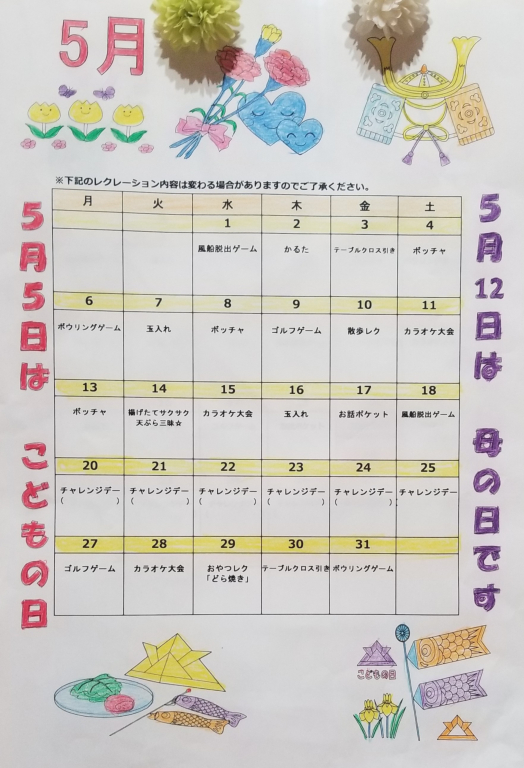 5月
※下記のレクレーション内容は変わる場合がありますのでご了承ください。
5月5日は こどもの日
5月12日は 母の日です
月 火 水 木 金 土
1 2 3 4
風船脱出ゲーム かるた テーブルクロス引き ボッチャ
6 7 8 9 10 11
ボウリングゲーム 玉入れ ボッチャ ゴルフゲーム 散歩レク カラオケ大会
13 14 15 16 17 18
ボッチャ 揚げたてサクサク カラオケ大会 玉入れ お話ポケット 風船脱出ゲーム
天ぷら三昧☆
20 21 22 23 24 25
チャレンジデー チャレンジデー チャレンジデー チャレンジデー チャレンジデー チャレンジデー
( ) ( ) ( ) ( ) ( ) ( )
27 28 29 30 31
ゴルフゲーム カラオケ大会 おやつレク テーブルクロス引き ボウリングゲーム
「どら焼き」
こどもの日